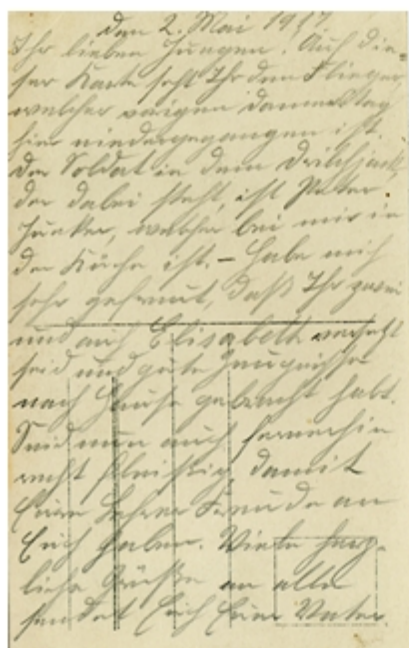 Den 2. Mai 1917
Ihr lieben Jungen. Auf die=
ser Karte seht Ihr den Flieger,
welcher vorigen Donnerstag
hier niedergegangen ist.
Der Soldat in dem Drilchjack,
der dabei steht, ist Peter
Junker, welcher bei mir in
der Küche ist. – Habe mich
sehr gefreut, daß Ihr zwei
und auch Elisabeth versetzt
seid und gute Zeugnisse
nach Hause gebracht habt.
Seid nun auch fernerhin
recht fleißig, damit
Eure Lehrer Freude an
Euch haben. Viele herz-
liche Grüße an alle
sendet Euch Euer Vater.